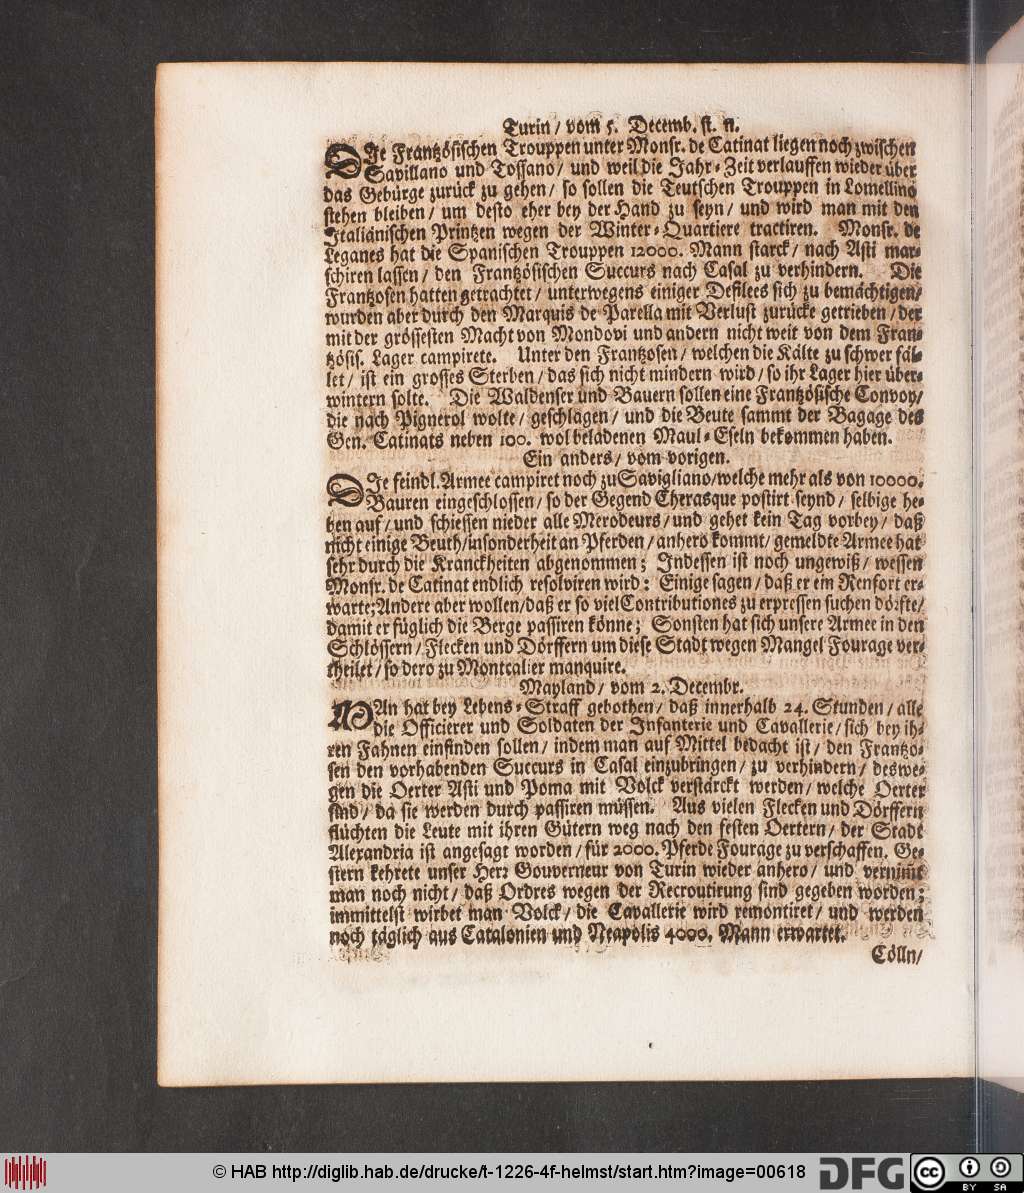 Turin / vom 5. Decemb. st. n.
DIe Frantzösischen Trouppen unter Monsr. de Catinat liegen noch zwischen
Savillano und Tossano / und weil die Jahr-Zeit verlauffen wieder über
das Gebürge zurück zu gehen / so sollen die Teutschen Trouppen in Lomellino
stehen bleiben / um desto eher bey der Hand zu seyn / und wird man mit den
Italiänischen Printzen wegen der Winter-Quartiere tractiren. Monsr. de
Leganes hat die Spanischen Trouppen 12000. Mann starck / nach Asti mar-
schiren lassen / den Frantzösischen Succurs nach Casal zu verhindern. Die
Frantzosen hatten getrachtet / unterwegens einiger Defilees sich zu bemächtigen/
wurden aber durch den Marquis de Parella mit Verlust zurücke getrieben / der
mit der grössesten Macht von Mondovi und andern nicht weit von dem Fran-
tzösis. Lager campirete. Unter den Frantzosen / welchen die Kälte zu schwer fäl-
let / ist ein grosses Sterben / das sich nicht mindern wird / so ihr Lager hier über-
wintern solte. Die Waldenser und Bauern sollen eine Frantzösische Convoy/
die nach Pignerol wolte / geschlagen / und die Beute sammt der Bagage des
Gen. Catinats neben 100. wol beladenen Maul-Eseln bekommen haben.
Ein anders / vom vorigen.
DIe feindl. Armee campiret noch zu Savigliano/welche mehr als von 10000.
Bauren eingeschlossen / so der Gegend Cherasque postirt seynd / selbige he-
ben auf / und schiessen nieder alle Merodeurs / und gehet kein Tag vorbey / daß
nicht einige Beuth/insonderheit an Pferden / anhero kommt / gemeldte Armee hat
sehr durch die Kranckheiten abgenommen; Indessen ist noch ungewiß / wessen
Monsr. de Catinat endlich resolviren wird: Einige sagen / daß er ein Renfort er-
warte; Andere aber wollen/daß er so viel Contributiones zu erpressen suchen dörfte/
damit er füglich die Berge passiren könne; Sonsten hat sich unsere Armee in den
Schlössern / Flecken und Dörffern um diese Stadt wegen Mangel Fourage ver-
theilet / so dero zu Montcalier manquire.
Mayland / vom 2. Decembr.
MAn hat bey Lebens-Straff gebothen / daß innerhalb 24. Stunden / alle
die Officierer und Soldaten der Infanterie und Cavallerie / sich bey ih-
ren Fahnen einfinden sollen / indem man auf Mittel bedacht ist / den Frantzo-
sen den vorhabenden Succurs in Casal einzubringen / zu verhindern / deswe-
gen die Oerter Asti und Poma mit Volck verstärckt werden / welche Oerter
sind / da sie werden durch passiren müssen. Aus vielen Flecken und Dörffern
flüchten die Leute mit ihren Gütern weg nach den festen Oertern / der Stadt
Alexandria ist angesagt worden / für 2000. Pferde Fourage zu verschaffen. Ge-
stern kehrete unser Herr Gouverneur von Turin wieder anhero / und vernimt
man noch nicht / daß Ordres wegen der Recroutirung sind gegeben worden;
immittelst wirbet man Volck / die Cavallerie wird remontiret / und werden
noch täglich aus Catalonien und Neapolis 4000. Mann erwartet.
Cölln/
© HAB http://diglib.hab.de/drucke/t-1226-4f-helmst/start.htm?image=00618
DFG
cc
BY SA